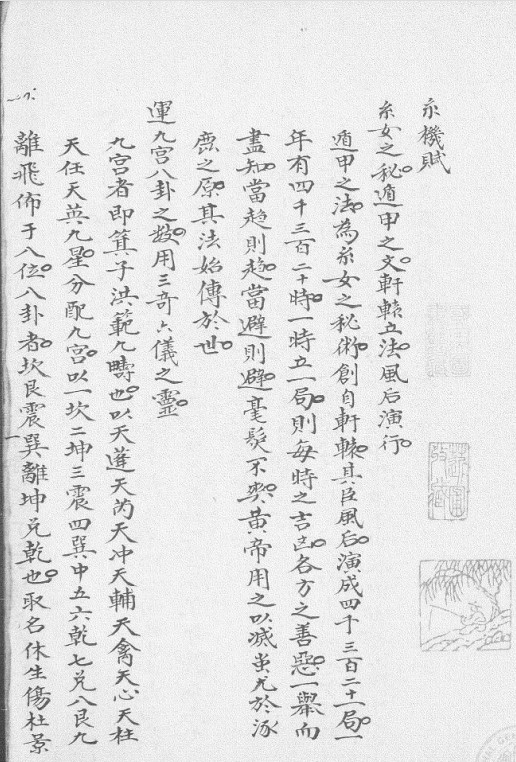 玄機賦
玄女之秘。遁甲之文。軒轅立法。風后演行。
遁甲之法。為玄女之秘術。創自軒轅。其臣風后。演成四千三百二十一局。一
年有四千三百二十時。一時立一局。則每時之吉凶。各方之善惡。一舉而
盡知。當趋則趋。當避則避。毫髮不爽。黃帝用之以滅蚩尤於涿
鹿之原。其法始傳於世。
運九宮八卦之数。用三奇六儀之靈。
九宮者即箕子洪範九疇也。以天蓬天芮天冲天輔天禽天心天柱
天任天英九星。分配九宮。以一坎二坤三震四巽中五六乾七兌八艮九
離飛佈于八位。八卦者。坎艮震巽離坤兌乾也。取名休生傷杜景